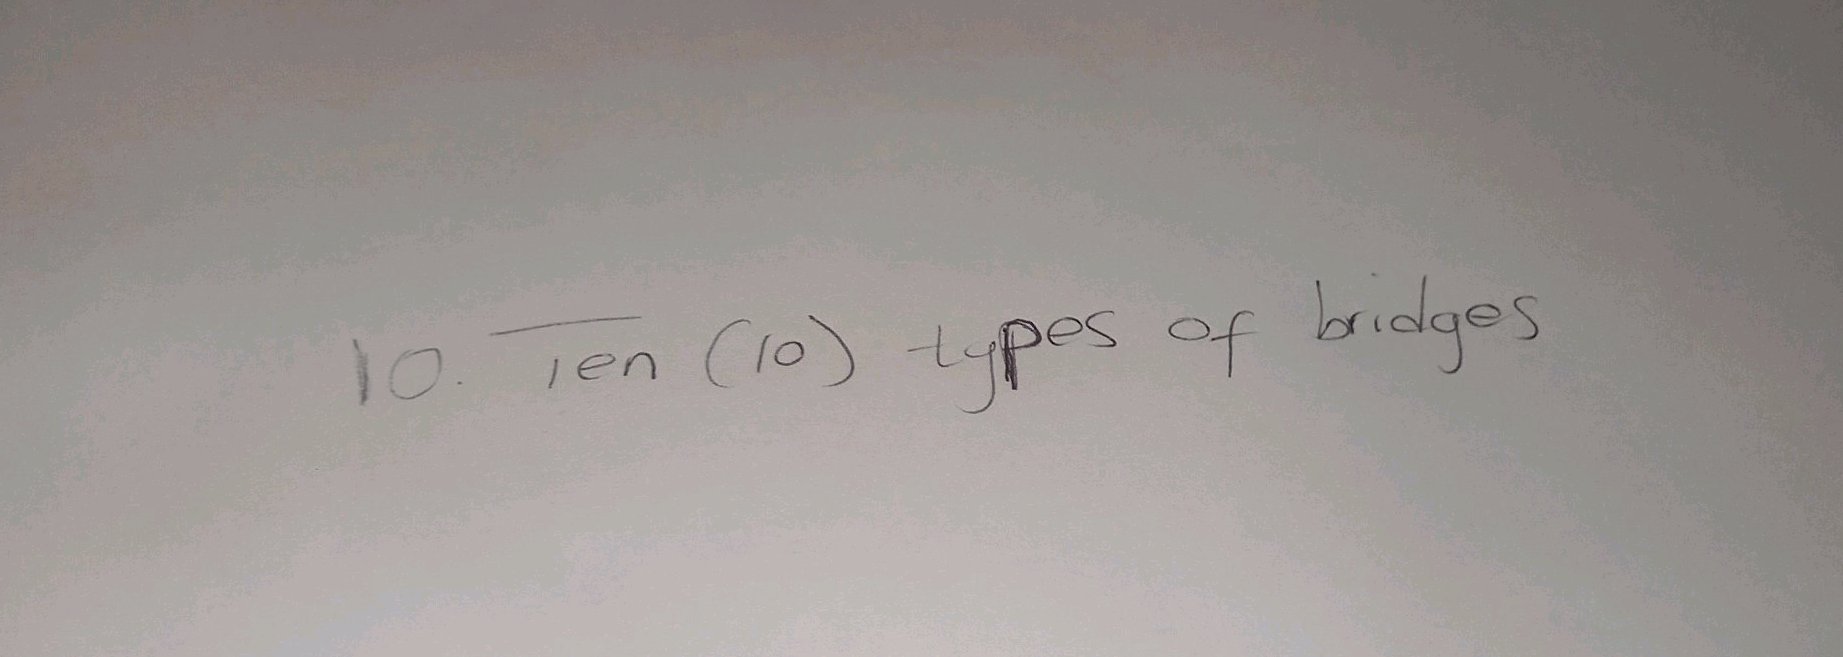 10. Ten (10) types of bridges